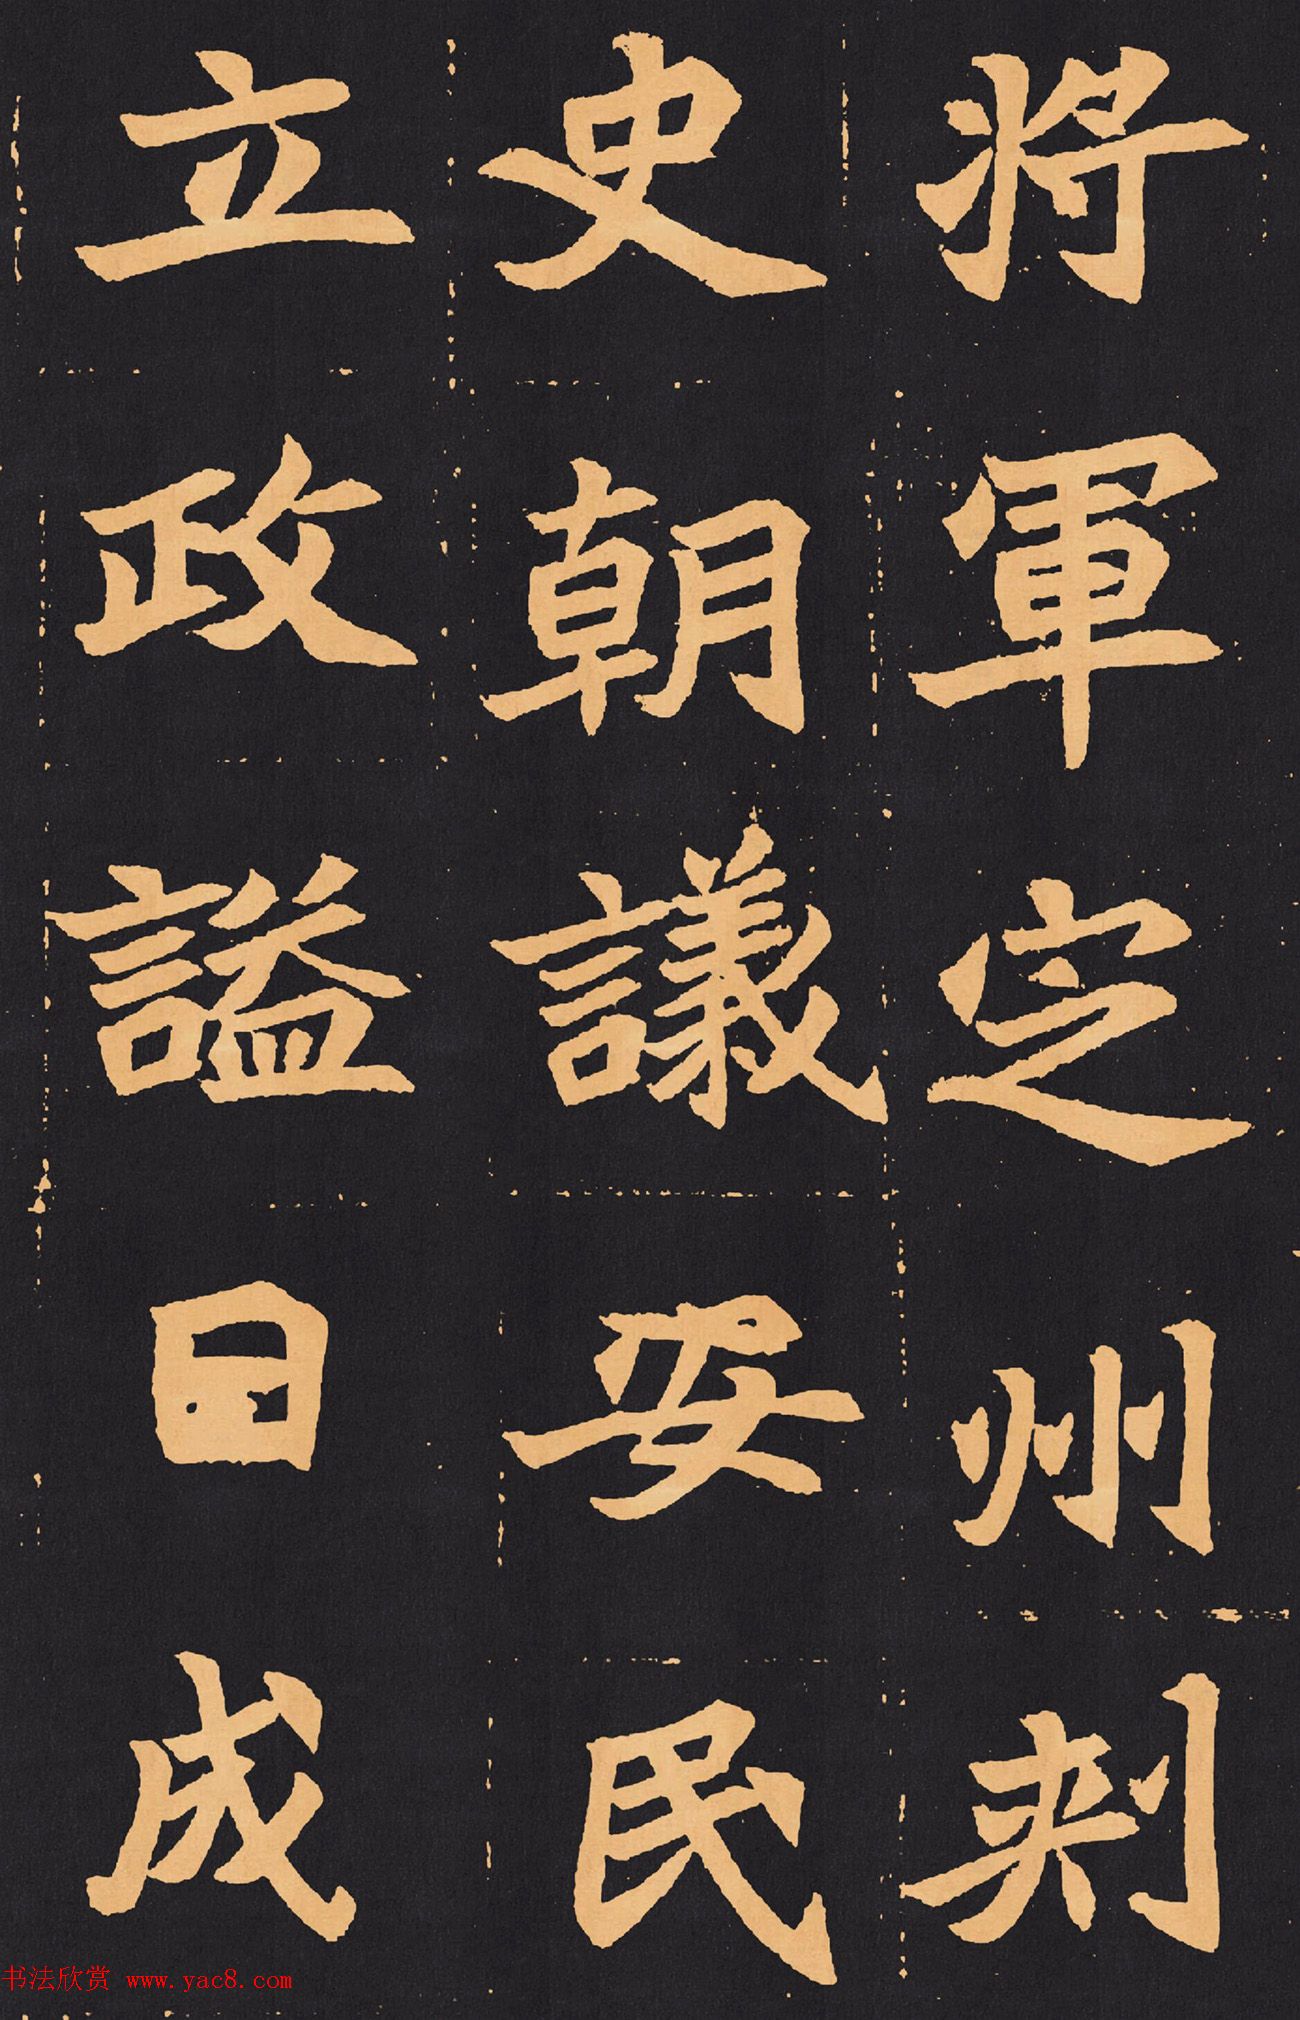 將軍定州刺
史朝議安民
立政謚曰成
书法欣赏 www.yac8.com